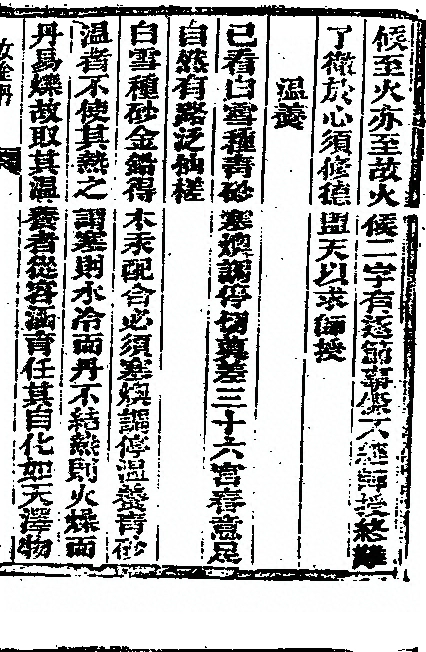 候至火亦至故火候二字有逐節事學人經師授終難
了徹於心須修德盟天以求師授
溫養
已看白雪種青砂寒燠調停切莫差三十六宮春意足
自然有路泛仙槎
白雪種砂金鉛得木汞配合必須寒燠調停溫養青砂
溫者不使其熱之謂寒則水冷而丹不結熱則火燥而
丹易爍故取其溫養者從容涵育任其自化如天澤物